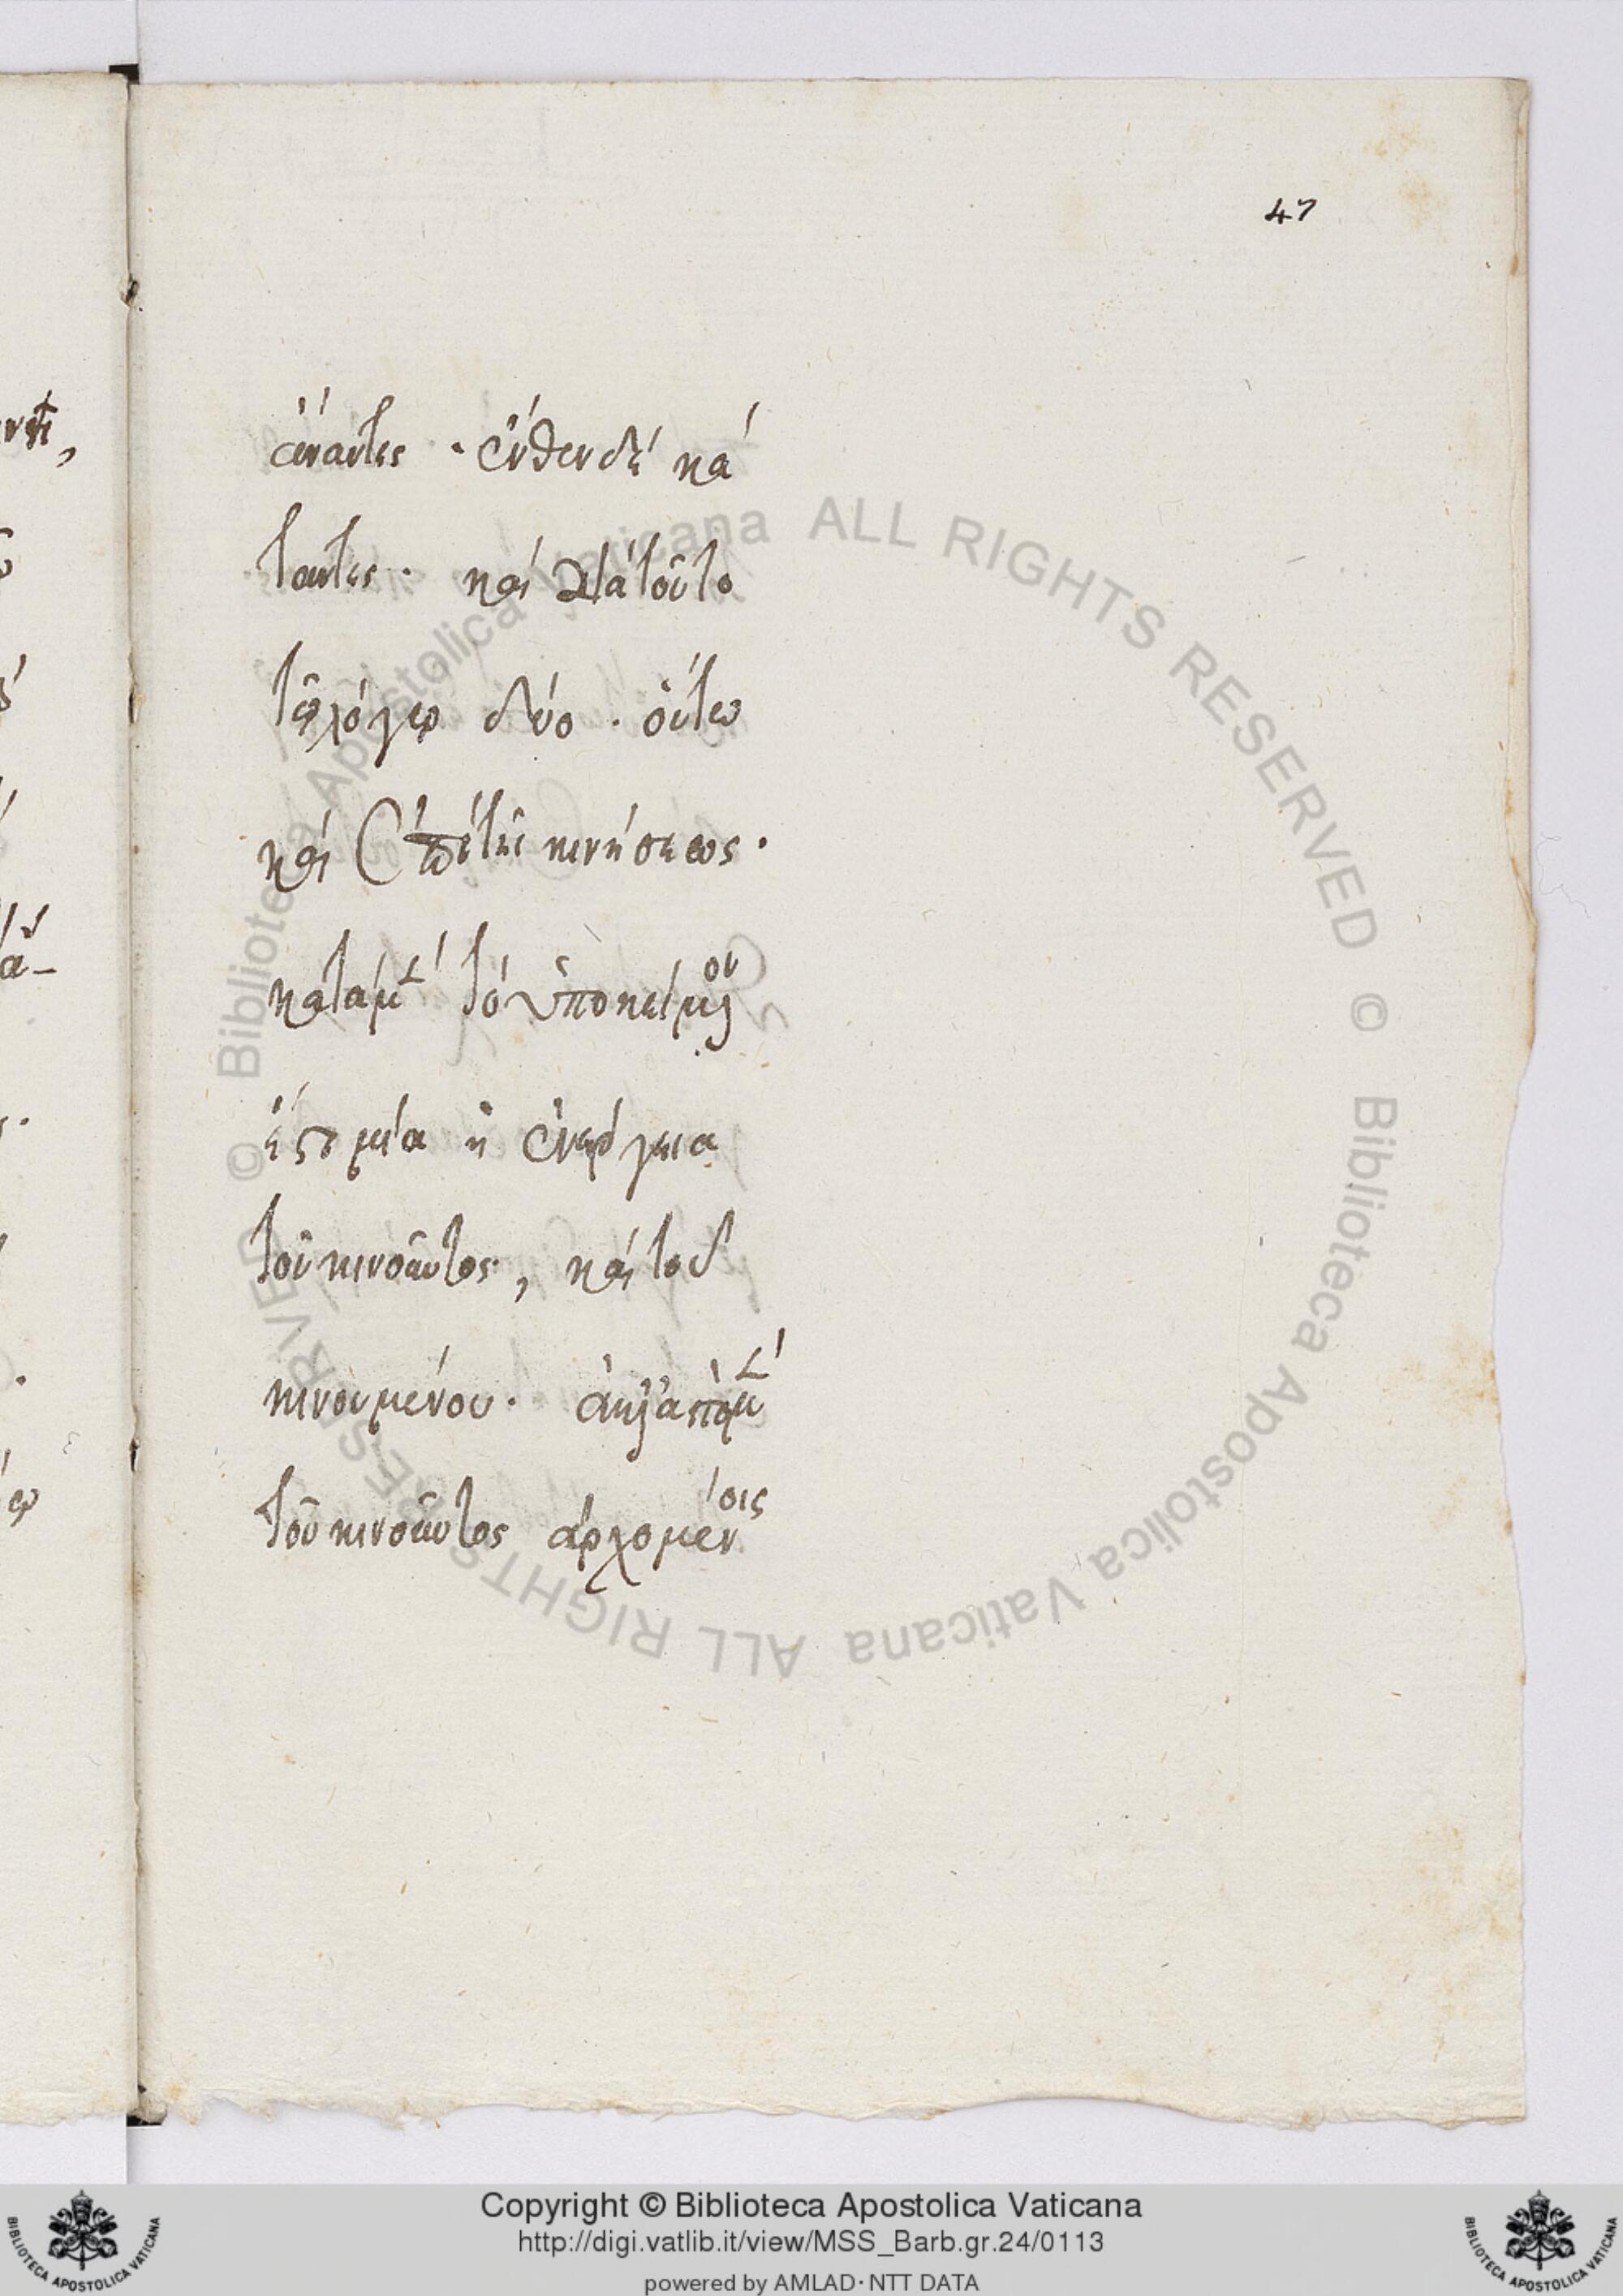 47
ἄναντες · ἔνθεν δὲ κά
ταντες · καὶ διὰ τοῦτο
τῷ λόγῳ δύο · οὕτω
καὶ ἐπὶ τῆς κινήσεως ·
κατὰ μ(ὲν) τὸ ὑποκείμ(εν)ον
ἔσται μία ἡ ἐνέργεια
τοῦ κινοῦντος, καὶ τοῦ
κινουμένου · ἀλλ' ἀπὸ μ(ὲν)
τοῦ κινοῦντος ἀρχομένοις
© Biblioteca Apostolica Vaticana ALL RIGHTS RESERVED © Biblioteca Apostolica Vaticana ALL RIGHTS RESERVED
Copyright © Biblioteca Apostolica Vaticana
http://digi.vatlib.it/view/MSS_Barb.gr.24/0113
powered by AMLAD · NTT DATA
BIBLIOTECA APOSTOLICA VATICANA
BIBLIOTECA APOSTOLICA VATICANA